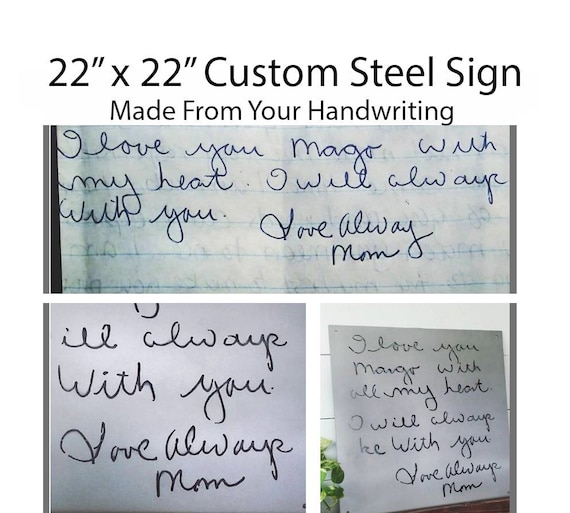 22” x 22” Custom Steel Sign
Made From Your Handwriting
I love you Mago with
my heart. I will always
With you.
Love Alway
Mom
ill always
With you.
Love Always
Mom
I love you
Margo with
all my heart.
I will always
be With you
Love Always
Mom